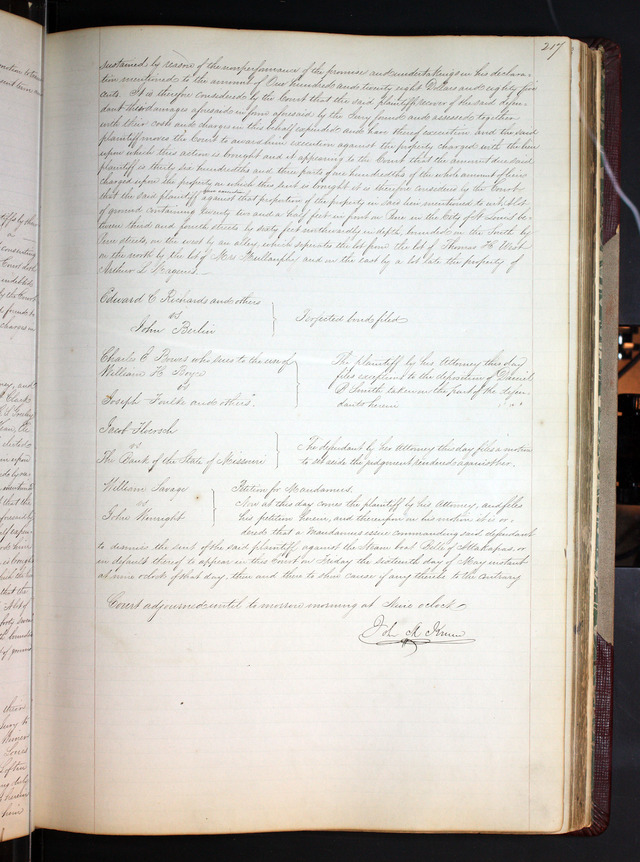 217
sustained by reason of the nonperformance of the promises and undertakings in his declara-
tion mentioned to the amount of One hundred and twenty eight Dollars and eighty five
cents. It is therefore considered by the Court that the said plaintiff recover of the said defen-
dant the damages aforesaid in form aforesaid by the Jury found and assessed together
with their cost and charges in this behalf expended and have thereof execution and the said
plaintiff moves the Court to award him execution against the property charged with the lien
upon which this action is brought and it appearing to the Court that the amount due said
plaintiff is thirty six hundredths and three parts of one hundredths of the whole amount of liens
charged upon the property on which this suit is brought it is therefore considered by the Court
that the said plaintiff have execution against that proportion of the property in said lien mentioned to wit, A lot
of ground containing twenty two and a half feet in front on Pine in the City of St Louis be-
tween third and fourth streets by sixty feet northwardly in depth, bounded on the South by
Pine street, on the west by an alley which separates the lot from the lot of Thomas H. West
on the north by the lot of Mrs Mullanphy and on the east by a lot late the property of
Arthur L. Magenis.
Edward E Richards and others
vs
John Berlin
Rejected bond filed
Charles E Bowes who sues to the use of
William H. Boyce
vs
Joseph Foulke and others.
The plaintiff by his Attorney this day
files exceptions to the deposition of Daniel
P. Smith taken on the part of the defen-
dants herein
Jacob
vs
The Bank of the State of Missouri
The defendant by his Attorney this day files a motion
to set aside the judgment rendered against her.
William Savage
vs
John Wainright
Petition for Mandamus.
Now at this day comes the plaintiff by his Attorney, and files
his petition herein, and thereupon on his motion it is or-
dered that a Mandamus issue commanding said defendant
to dismiss the suit of the said plaintiff against the Steam boat Belle of Attakapas, or
in default thereof to appear in this Court on Friday the sixteenth day of May instant
at nine oclock of that day, then and there to shew cause if any there be to the contrary
Court adjourned until to morrow morning at Nine oclock
Jno M Krum